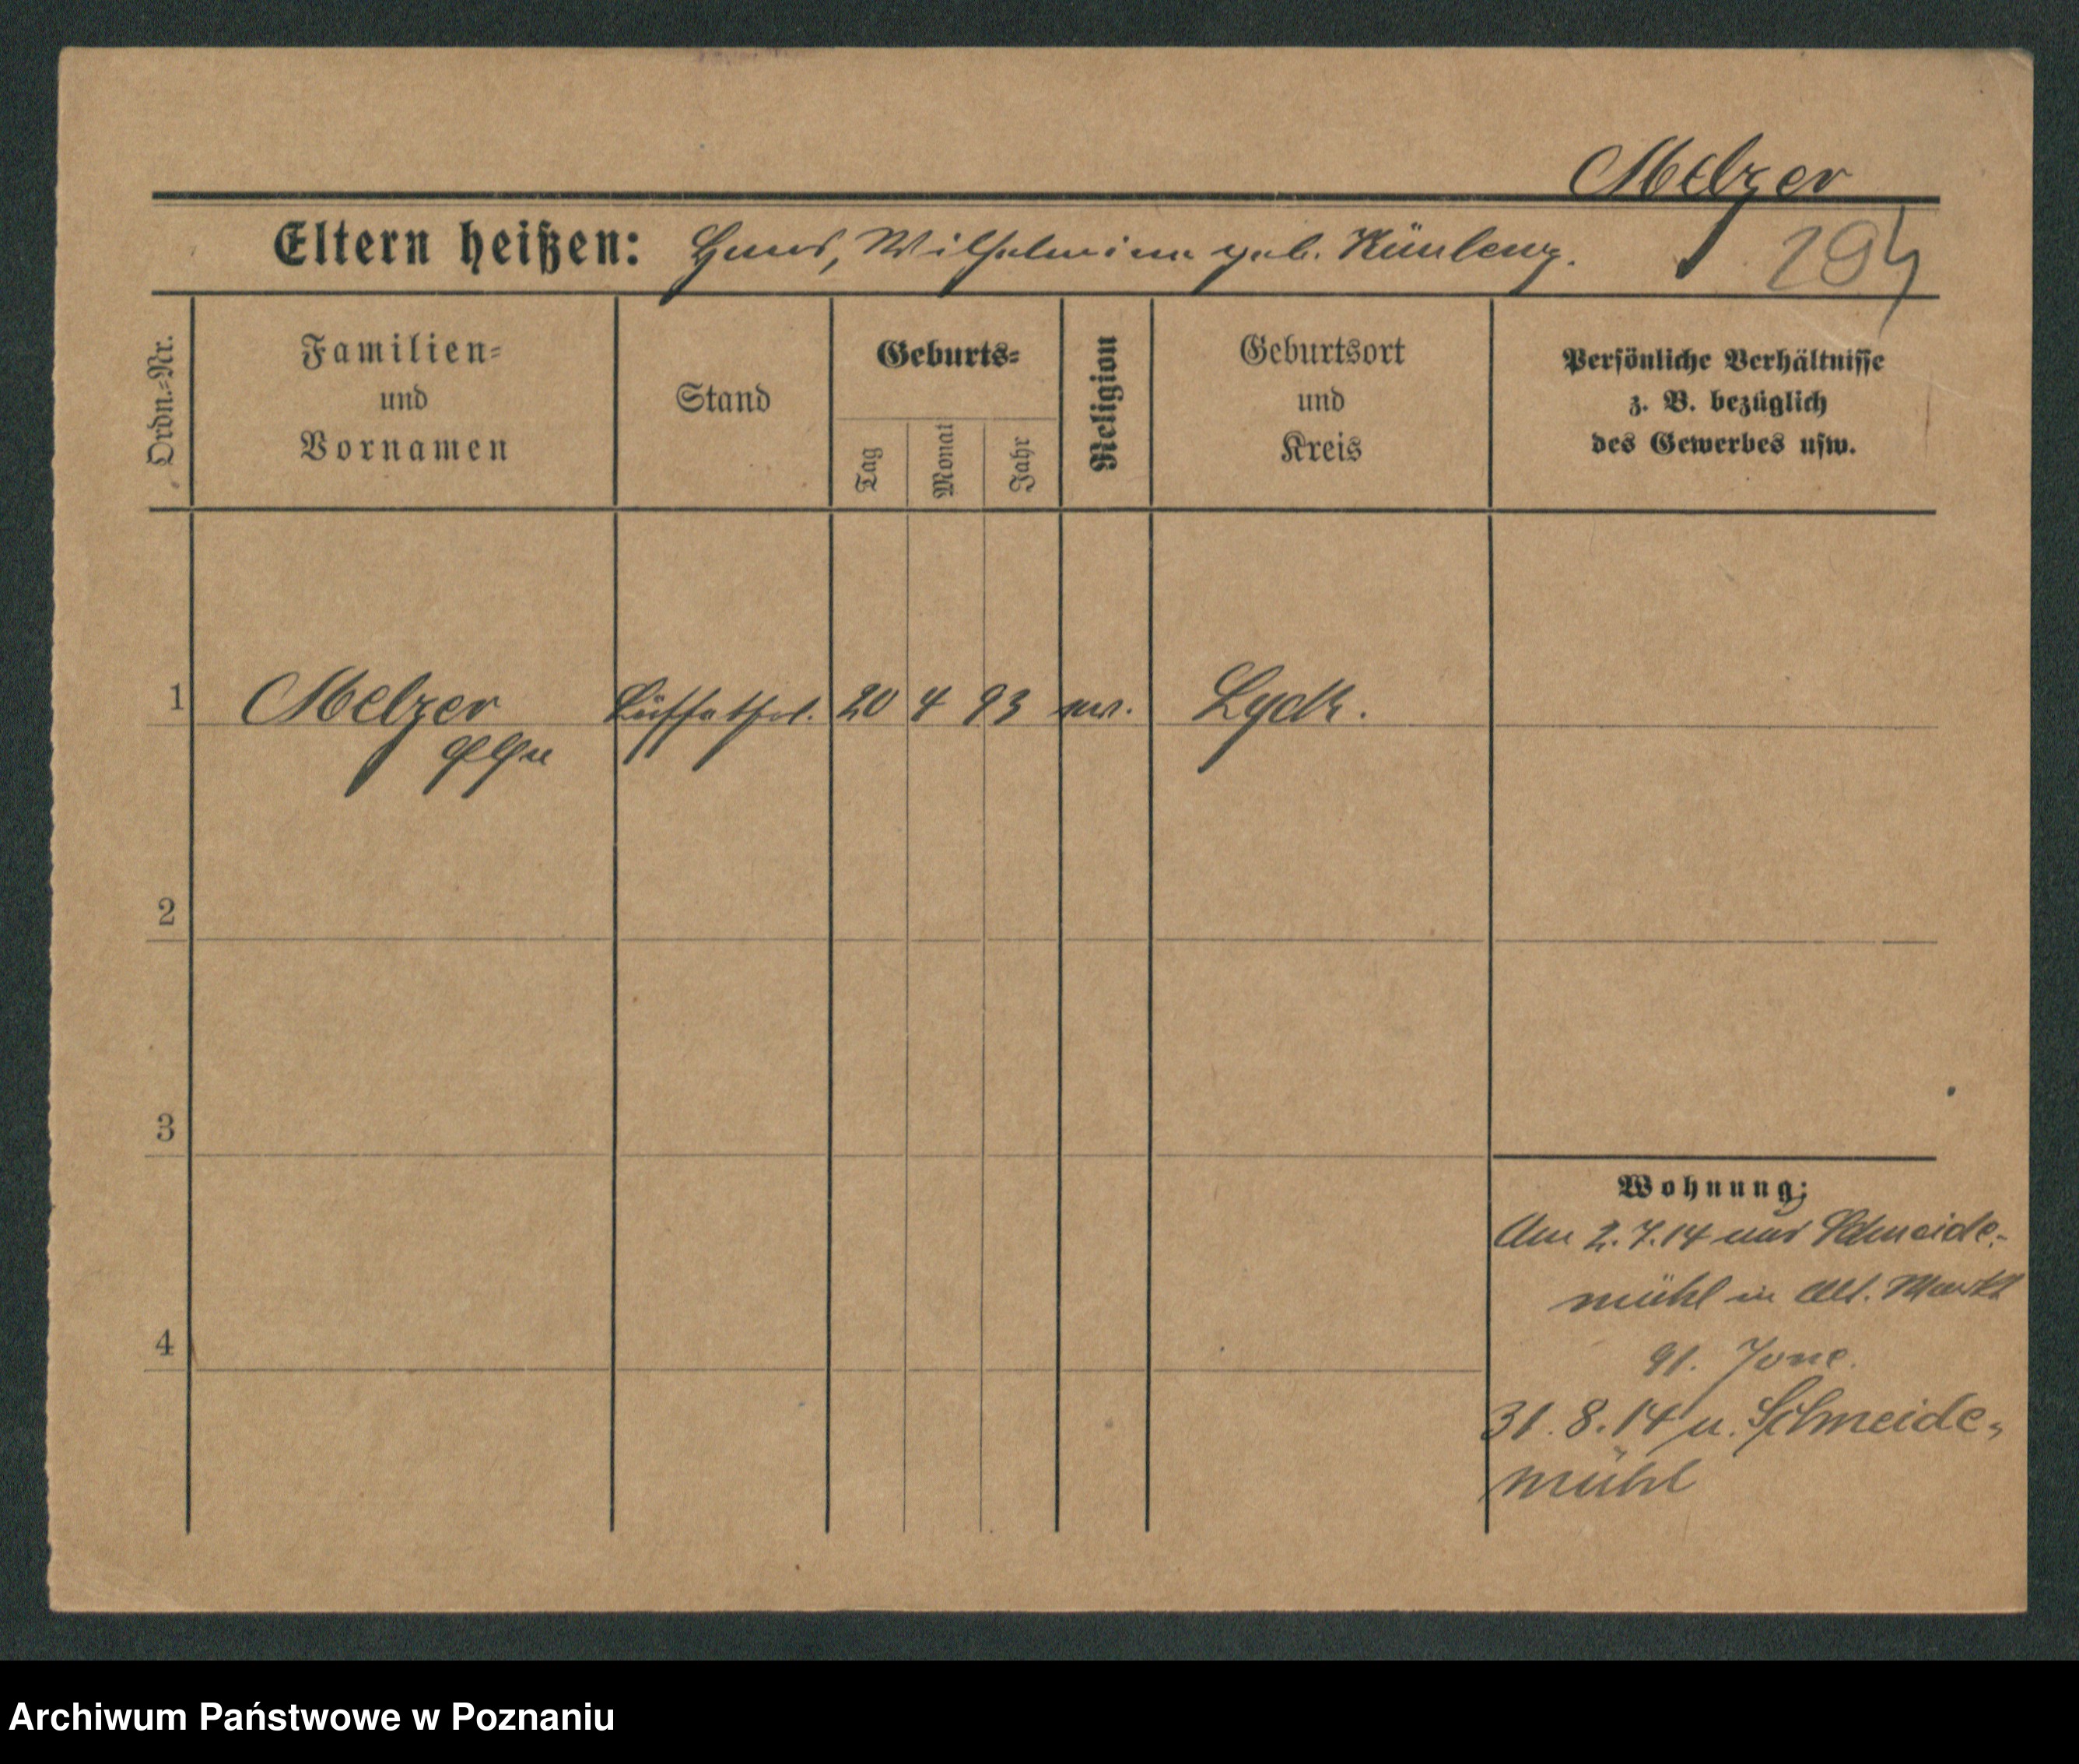 Melzer
Eltern heißen: Hans, Wilhelmine geb.
Ordn.-Nr.
Familien-
und
Vornamen
Stand
Geburts-
Tag
Monat
Jahr
Religion
Geburtsort
und
Kreis
Persönliche Verhältnisse
z. B. bezüglich
des Gewerbes usw.
1 Melzer 20 4 93 ev. Lyck.
2
3
4
Wohnung:
Am 2.7.14 aus Schneide-
mühl in Alt. Markt
91.
31.8.14 n. Schneide-
mühl
Archiwum Państwowe w Poznaniu